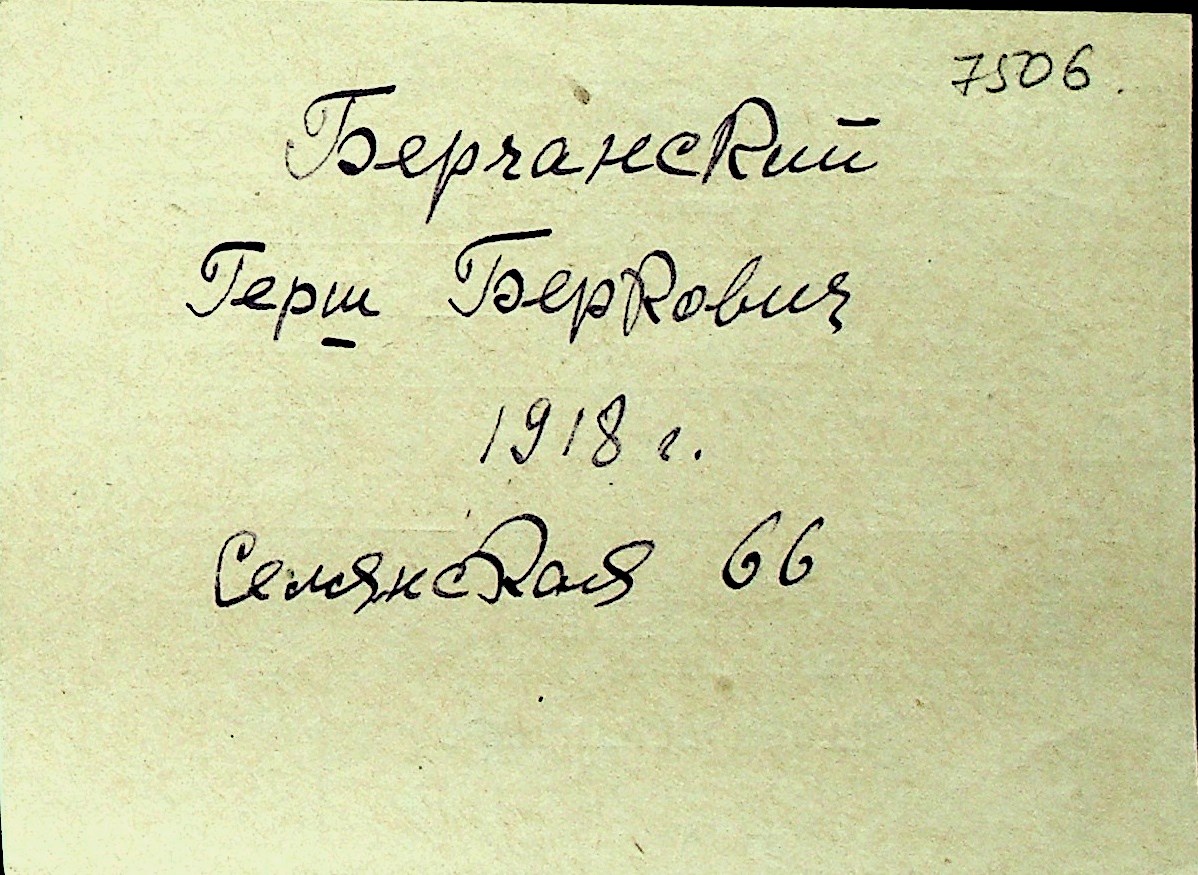 7506.
Берчанский
Герш Беркович
1918 г.
Семянская 66